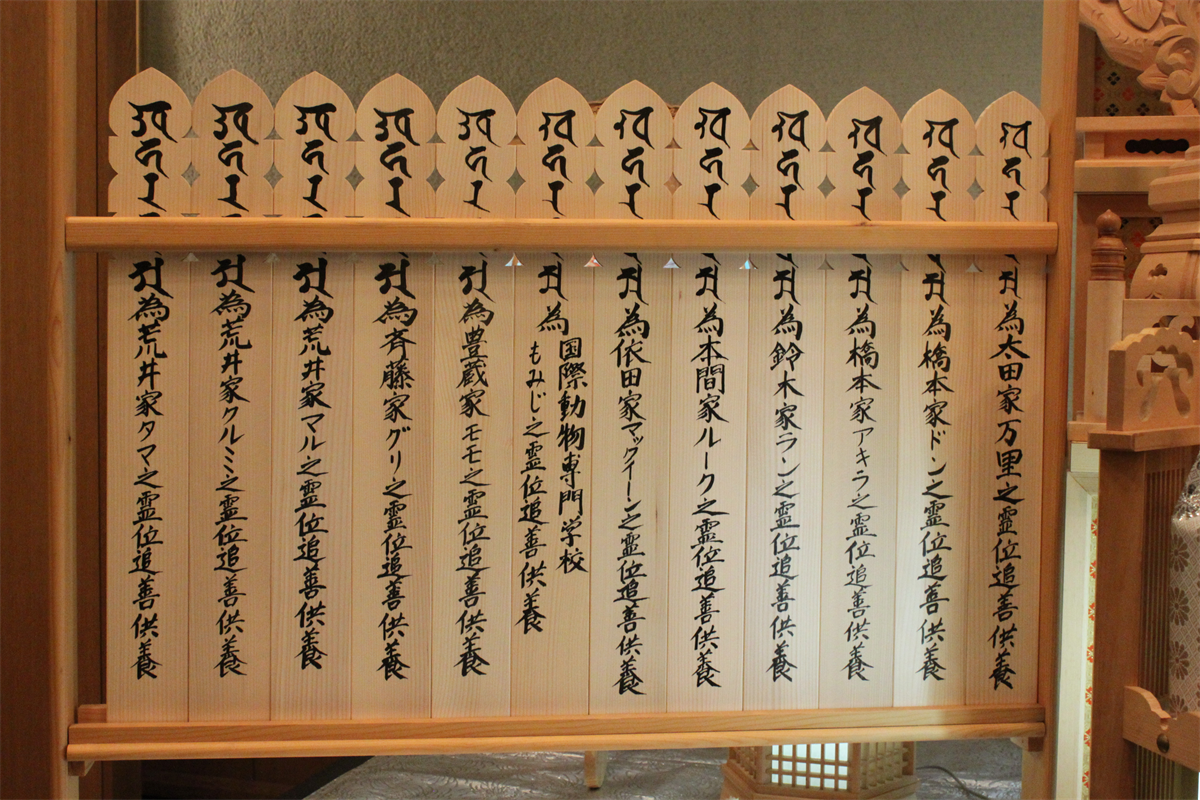 為太田家万里之霊位追善供養
為橋本家ドン之霊位追善供養
為橋本家アキラ之霊位追善供養
為鈴木家ラン之霊位追善供養
為本間家ルーク之霊位追善供養
為依田家マックイーン之霊位追善供養
為国際動物専門学校
もみじ之霊位追善供養
為豊蔵家モモ之霊位追善供養
為斉藤家グリ之霊位追善供養
為荒井家マル之霊位追善供養
為荒井家クルミ之霊位追善供養
為荒井家タマ之霊位追善供養